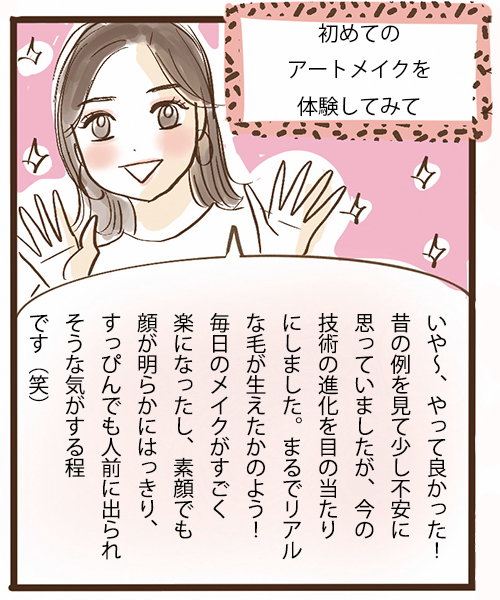 初めての
アートメイクを
体験してみて
いや〜、やって良かった！
昔の例を見て少し不安に
思っていましたが、今の
技術の進化を目の当たり
にしました。まるでリアル
な毛が生えたかのよう！
毎日のメイクがすごく
楽になったし、素顔でも
顔が明らかにはっきり、
すっぴんでも人前に出られ
そうな気がする程
です（笑）